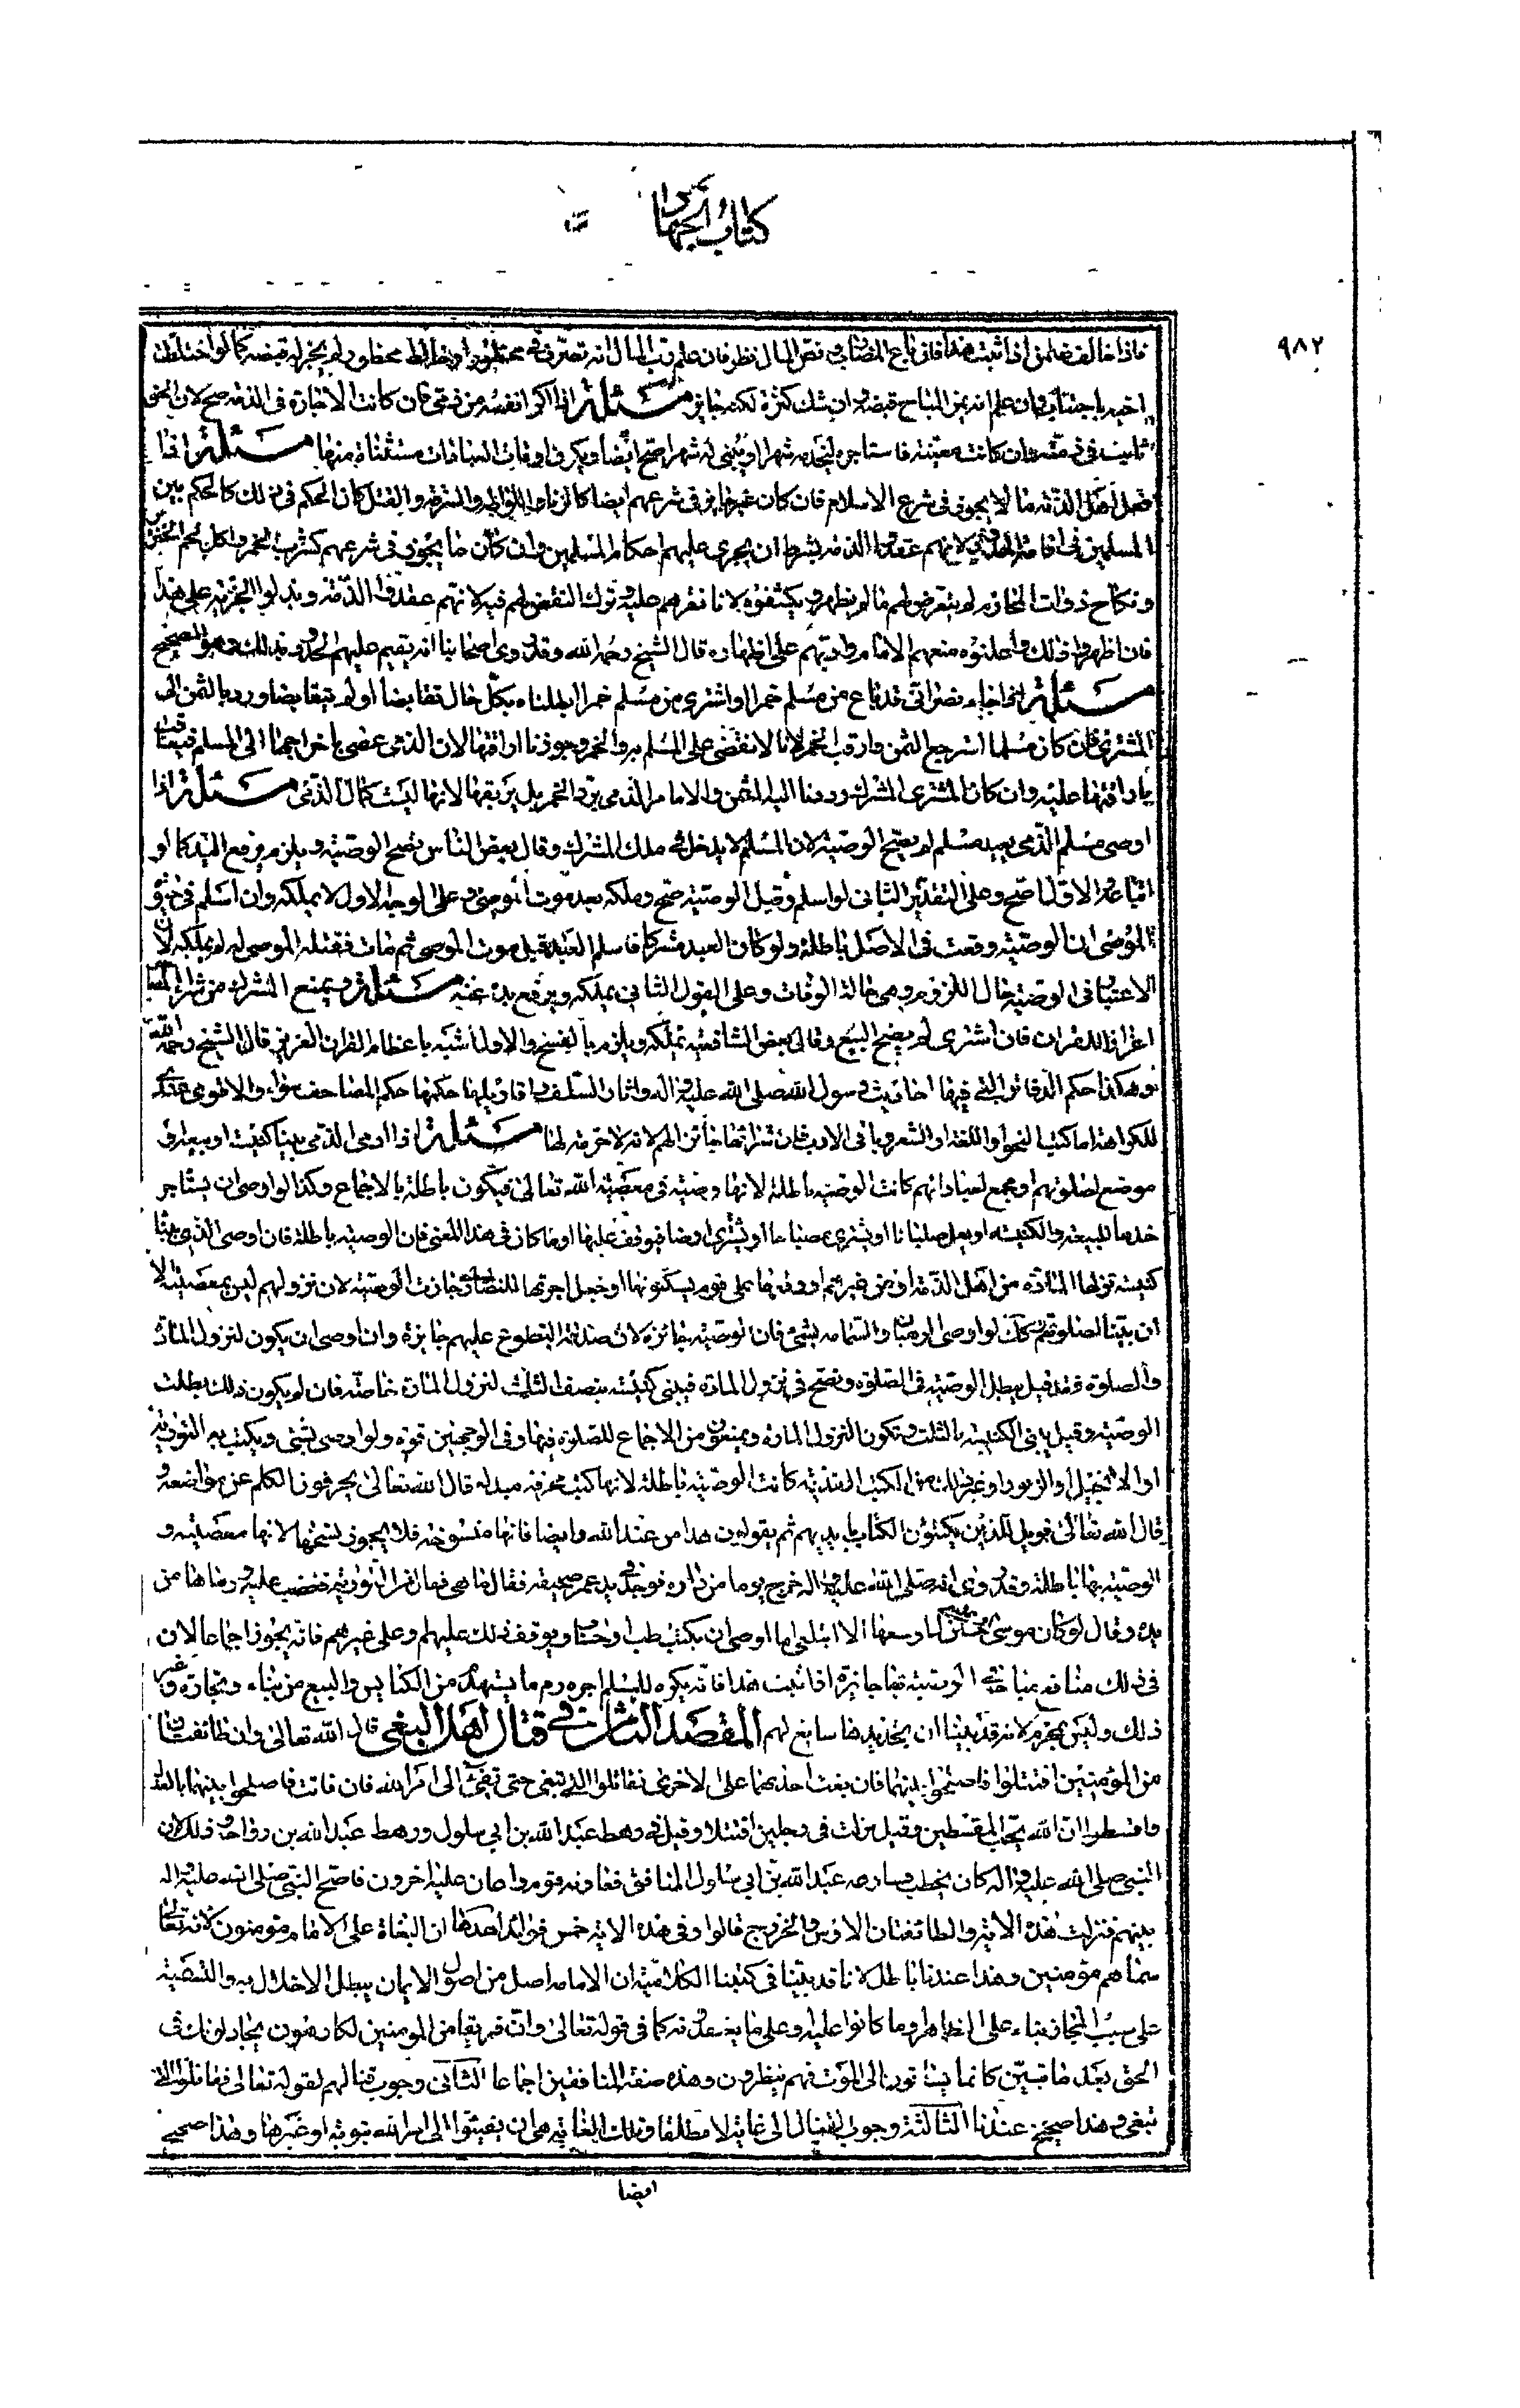 كتاب الجهاد
٩٨٢
فاذا خالف ضمن اذا ثبت هذا فان باع المضارب ونض المال نظر فان علم رب المال انه تصرف في محظور او خالط محظور لم يجز له قبضه كما لو اختلطت
اخته باجنبيات وان علم انه من المباح قبضه وان شك كره لكنه جايز مسئلة اذا اكرى نفسه من ذمى فان كانت الاجارة فى الذمة صح لان الحق
ثابت فى ذمته وان كانت معينة فاستاجره ليخدمه شهرا او يبنى له شهرا صح ايضا ويكون اوقات العبادات مستثناة منها مسئلة اذا
فعل اهل الذمة ما لا يجوز فى شرع الاسلام فان كان غير جايز فى شرعهم ايضا كالزنا واللواط والسرقة والقتل كان الحكم فى ذلك كالحكم بين
المسلمين فى اقامة الحدود لانهم عقدوا الذمة بشرط ان يجرى عليهم احكام المسلمين وان كان مما يجوز فى شرعهم كشرب الخمر واكل لحم الخنزير
ونكاح ذوات المحارم لم يتعرض لهم ما لم يظهروه ويكشفوه لانا نقرهم عليه وترك التعرض لهم فيه لانهم عقدوا الذمة وبذلوا الجزية على هذا
فان اظهروا ذلك واعلنوه منعهم الامام وادبهم على اظهاره قال الشيخ رحمه الله وقد روى اصحابنا انه يقيم عليهم الحدود بذلك وهو الصحيح
مسئلة اذا جاء نصرانى قد باع من مسلم خمرا او اشترى من مسلم خمرا ابطلناه بكل حال تقابضا او لم يتقابضا ورددنا الثمن الى
المشترى فان كان مسلما استرجع الثمن وارقنا الخمر لانا لا نقضى على المسلم برد الخمر وجوزنا اراقتها لان الذمى عصى باخراجها الى المسلم فيعاقب
باراقتها عليه وان كان المشترى المشرك رددنا اليه الثمن ولا نامر الذمى برد الخمر بل يريقها لانها ليست كمال الذمى مسئلة اذا
اوصى مسلم لذمى بعبد مسلم لم يصح الوصية لان المسلم لا يدخل فى ملك المشرك وقال بعض الناس يصح الوصية ويلزم برفع اليد كما لو
ابتاعه الاول اصح وعلى التقدير الثانى لو اسلم وقبل الوصية صح وملكه بعد موت الموصى وعلى الوجه الاول لا يملكه وان اسلم فى حيوة
الموصى لان الوصية وقعت فى الاصل باطلة ولو كان العبد مشركا فاسلم العبد قبل موت الموصى ثم مات فقبله الموصى له لم يملكه لان
الاعتبار فى الوصية حال اللزوم وهى حالة الوفات وعلى القول الثانى يملكه ويرفع يده عنه مسئلة ويمنع المشرك من شراء المصاحف
اعزازا للقران فان اشترى لم يصح البيع وقال بعض الشافعية يملكه ويلزم بالفسخ والاول اشبه باعظام القران العزيز قال الشيخ رحمه الله
وهكذا حكم الدفاتر التى فيها احاديث رسول الله صلى الله عليه واله واثار السلف واقاويلها حكمها حكم المصاحف سواء والاقوى عندى
الكراهة اما كتب النحو واللغة او الشعر وباقى الادب فان شرائها جائز لهم لانه لا حرمة لها مسئلة اذا اوصى الذمى ببناء كنيسة او بيعة او
موضع لصلوتهم او مجمع لعباداتهم كانت الوصية باطلة لانها وصية فى معصية الله تعالى فيكون باطلة بالاجماع وكذا لو اوصى ان يستاجر
خدما للبيعة والكنيسة او يعمل صلبانا او يشترى مصباحا او يشترى ارضا فيوقف عليها او ما كان فى هذا المعنى فان الوصية باطلة فان اوصى الذمى ببناء
كنيسة تنزلها المارة من اهل الذمة او من غيرهم او وقفها على قوم يسكنونها او جعل اجرتها للنصارى جازت الوصية لان نزولهم ليس بمعصية الا
ان يبنيها لصلوتهم وكذا لو اوصى للرهبان والشمامسة بشئ فان الوصية جائزة لان صدقة التطوع عليهم جايزة وان اوصى ان يكون لنزول المارة
والصلوة فقد قيل يبطل الوصية فى الصلوة وتصح فى نزول المارة فيبنى كنيسة بنصف الثلث لنزول المارة خاصة فان لم يكون ذلك بطلت
الوصية وقيل يبنى الكنيسة بالثلث وتكون لنزول المارة ويمنعون من الاجتماع للصلوة فيها وفى الوجهين قوة ولو اوصى بشئ ويكتب به التورية
او الانجيل او الزبور او غير ذلك من الكتب القديمة كانت الوصية باطلة لانها كتب محرفة مبدلة قال الله تعالى يحرفون الكلم عن مواضعه و
قال الله تعالى فويل للذين يكتبون الكتاب بايديهم ثم يقولون هذا من عند الله وايضا فانها منسوخة فلا يجوز نسخها لانها معصية و
الوصية بها باطلة وقد روى انه صلى الله عليه واله خرج يوما من داره فوجد فى يد عمر صحيفة فقال ما هى فقال من التورية فغضب عليه ورماها من
يده وقال لو كان موسى او عيسى حيين لما وسعهما الا اتباعى اما اوصى ان يكتب طب او حساب ويوقف ذلك عليهم وعلى غيرهم فانه يجوز اجماعا لان
فى ذلك منافع مباحة الوصية بها جايزة اذا ثبت هذا فانه يكره للمسلم اجرة رم ما يستهدم من الكنايس والبيع من بناء ونجارة وغير
ذلك وليس بمحرم لانه قد بينا ان تجديدها سايغ لهم المقصد الثالث فى قتال اهل البغى قال الله تعالى وان طائفتان
من المؤمنين اقتتلوا فاصلحوا بينهما فان بغت احديهما على الاخرى فقاتلوا التى تبغى حتى تفئ الى امر الله فان فائت فاصلحوا بينهما بالعدل
واقسطوا ان الله يحب المقسطين وقيل نزلت فى رجلين اقتتلا وقيل فى رهط عبد الله بن ابى سلول ورهط عبد الله بن رواحة وذلك لان
النبى صلى الله عليه واله كان يخطب فعارضه عبد الله بن ابى سلول المنافق فعاونه قوم واعان عليه اخرون فاصلح النبى صلى الله عليه واله
بينهم فنزلت هذه الاية والطائفتان الاوس والخزرج قالوا وفى هذه الاية خمس فوائد احدها ان البغاة على الامام مؤمنون لانه تعالى
سماهم مؤمنين وهذا عندنا باطل لانا قد بينا فى كتبنا الكلامية ان الامامة اصل من اصول الايمان يبطل الاخلال به والتسمية
على سبيل المجاز بناء على الظاهر وما كانوا عليه وعلى ما يعتقدونه كما فى قوله تعالى وان فريقا من المؤمنين لكارهون يجادلونك فى
الحق بعد ما تبين كانما يساقون الى الموت وهم ينظرون وهذه صفة المنافقين اجماعا الثانى وجوب قتالهم لقوله تعالى فقاتلوا التى
تبغى وهذا صحيح عندنا الثالثة وجوب القتال الى غاية لا مطلقا وتلك الغاية هى ان يفيئوا الى امر الله بتوبة او غيرها وهذا صحيح
ايضا